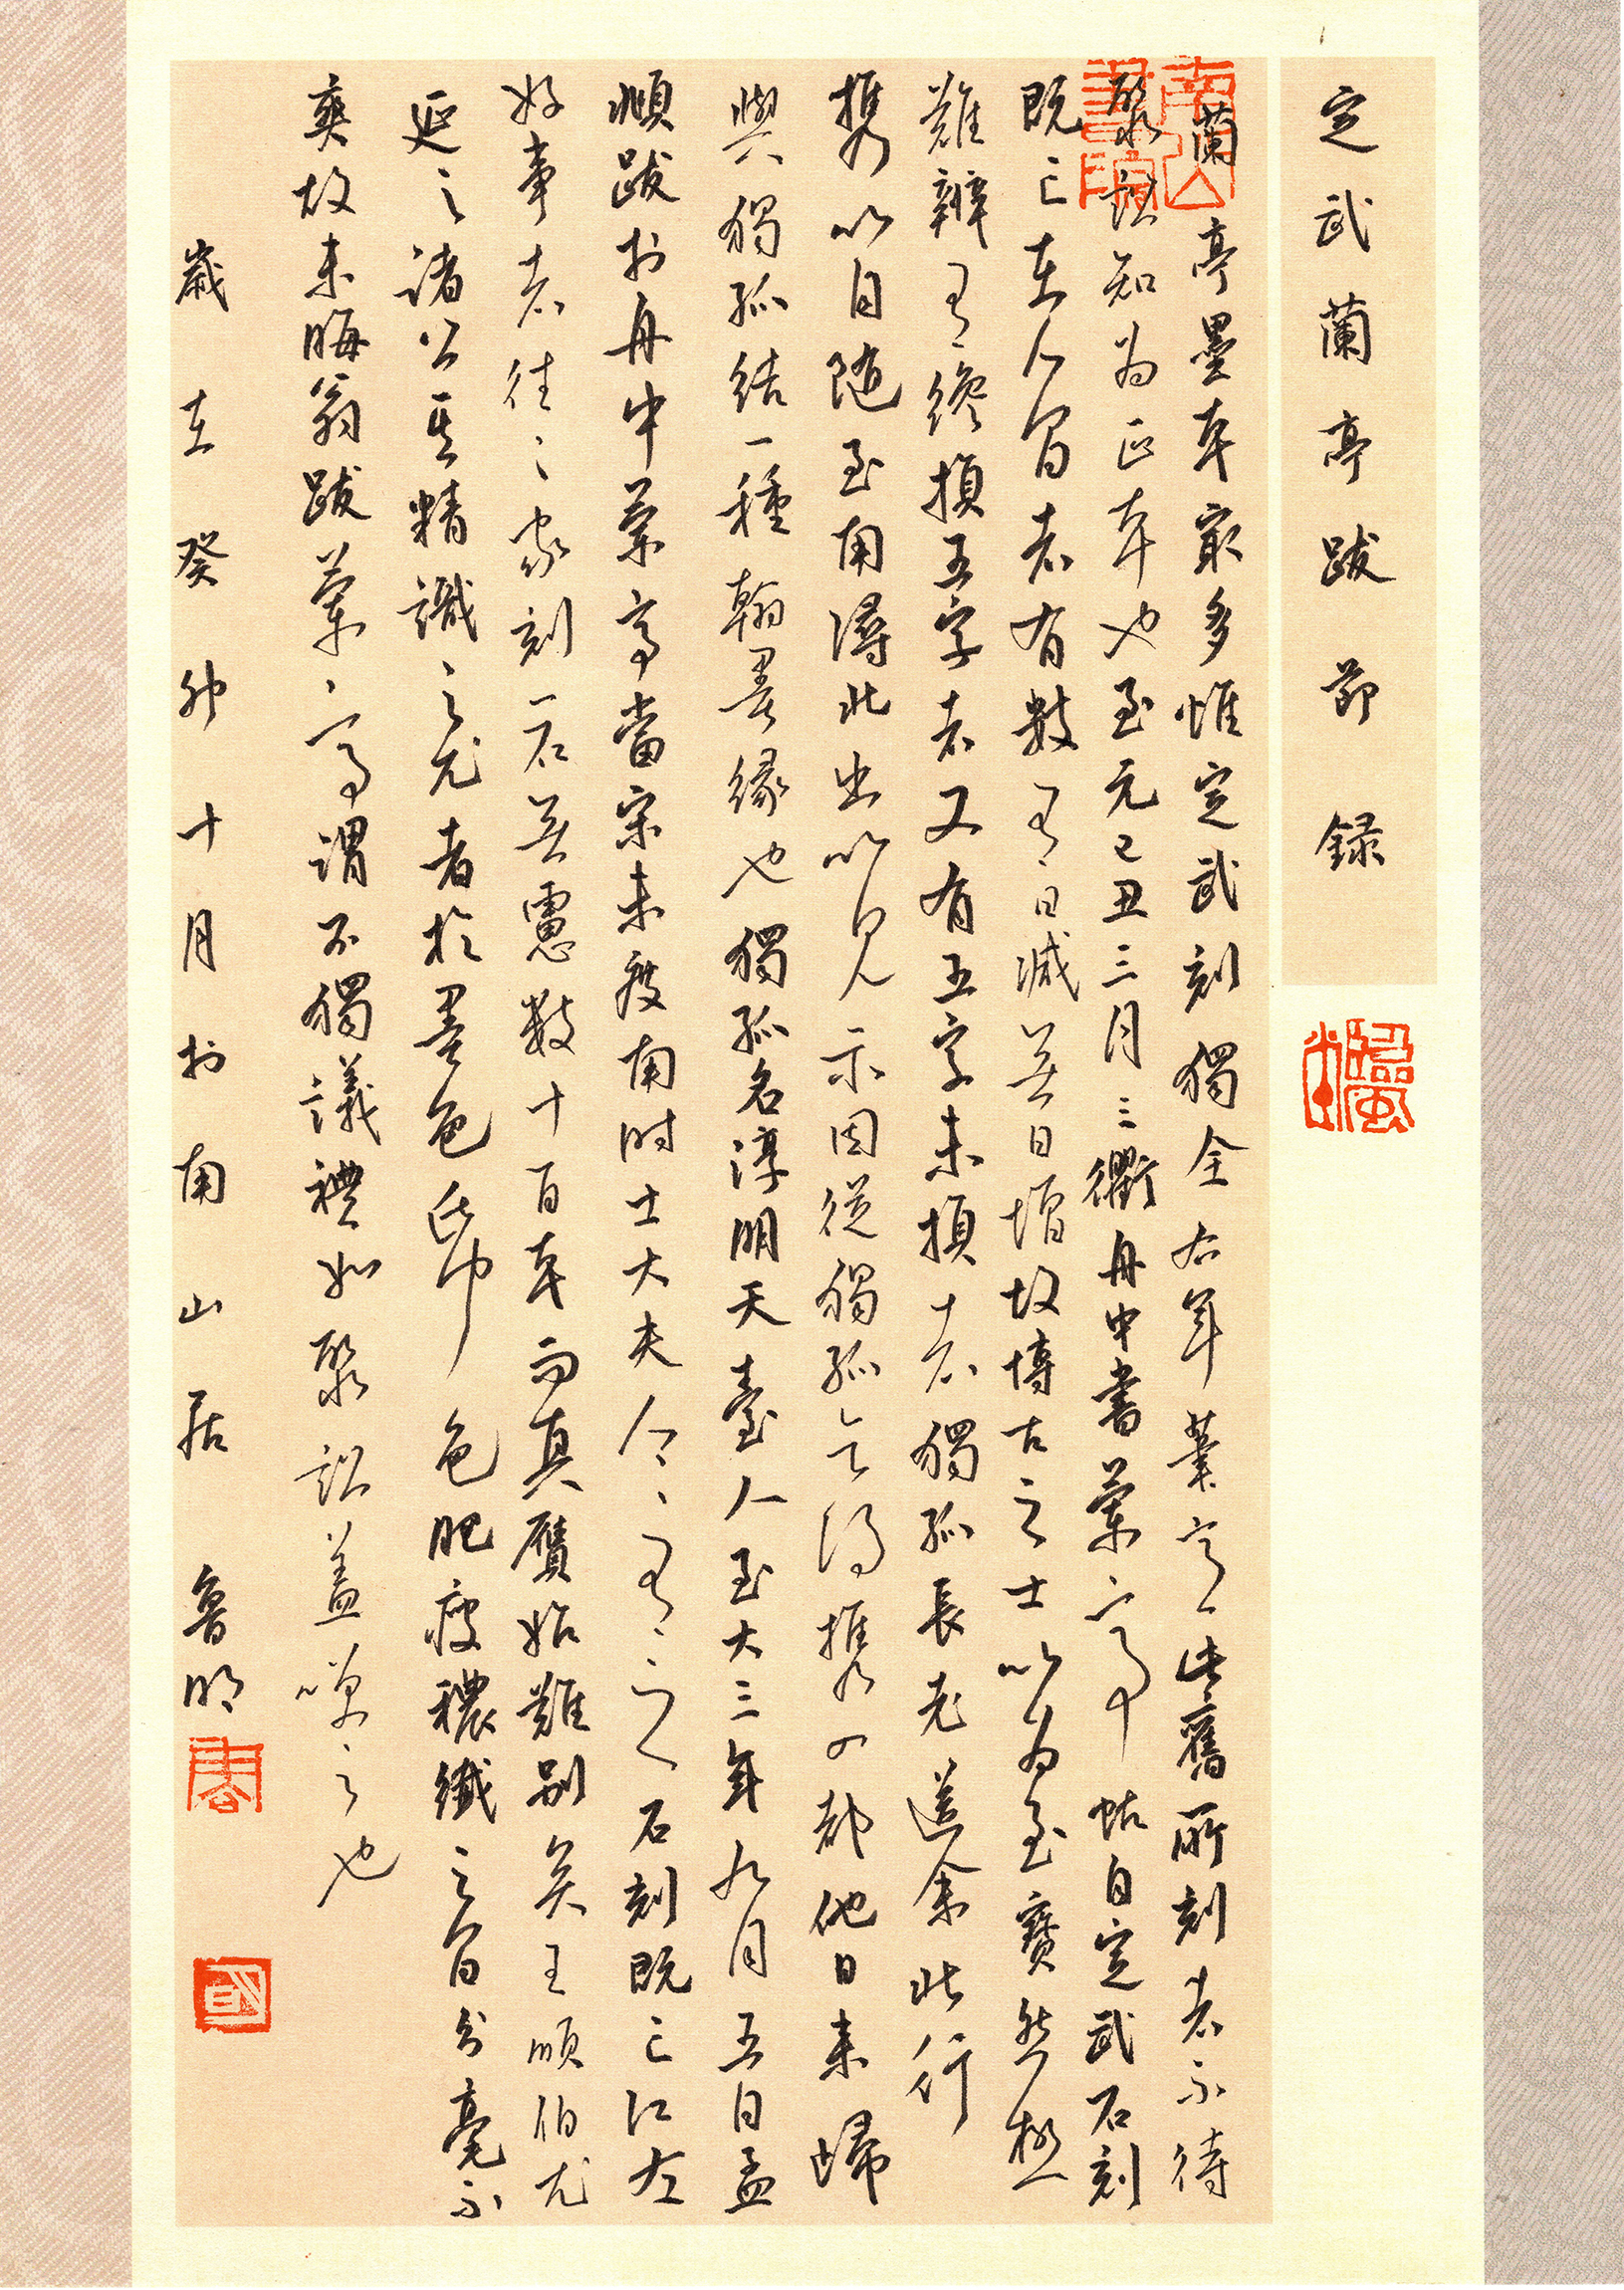 定武蘭亭跋節録
南山書院
蘭亭墨本最多惟定武刻獨全右軍筆意此舊所刻者不待
聚訟知為正本也至元己丑三月三衢舟中書蘭亭帖自定武石刻
既亡在人間者有數有日減無日增故博古之士以為至寶然極
難辨有纔損五字者又有五字未損者獨孤長老送余北行
携以自随至南潯北出以見示因從獨孤乞得携入都他日来歸
與獨孤結一種翰墨緣也獨孤名淳朋天臺人至大三年九月五日孟
頫跋於舟中蘭亭當宋未度南時士大夫人人有之石刻既亡江左
好事者往往家刻一石無慮數十百本而真贋始難别矣王順伯尤
延之諸公其精識之尤者於墨色紙色肥瘦穠纖之間分毫不
爽故朱晦翁跋蘭亭謂不獨議禮如聚訟蓋笑之也
歲在癸卯十月於南山居 魯明